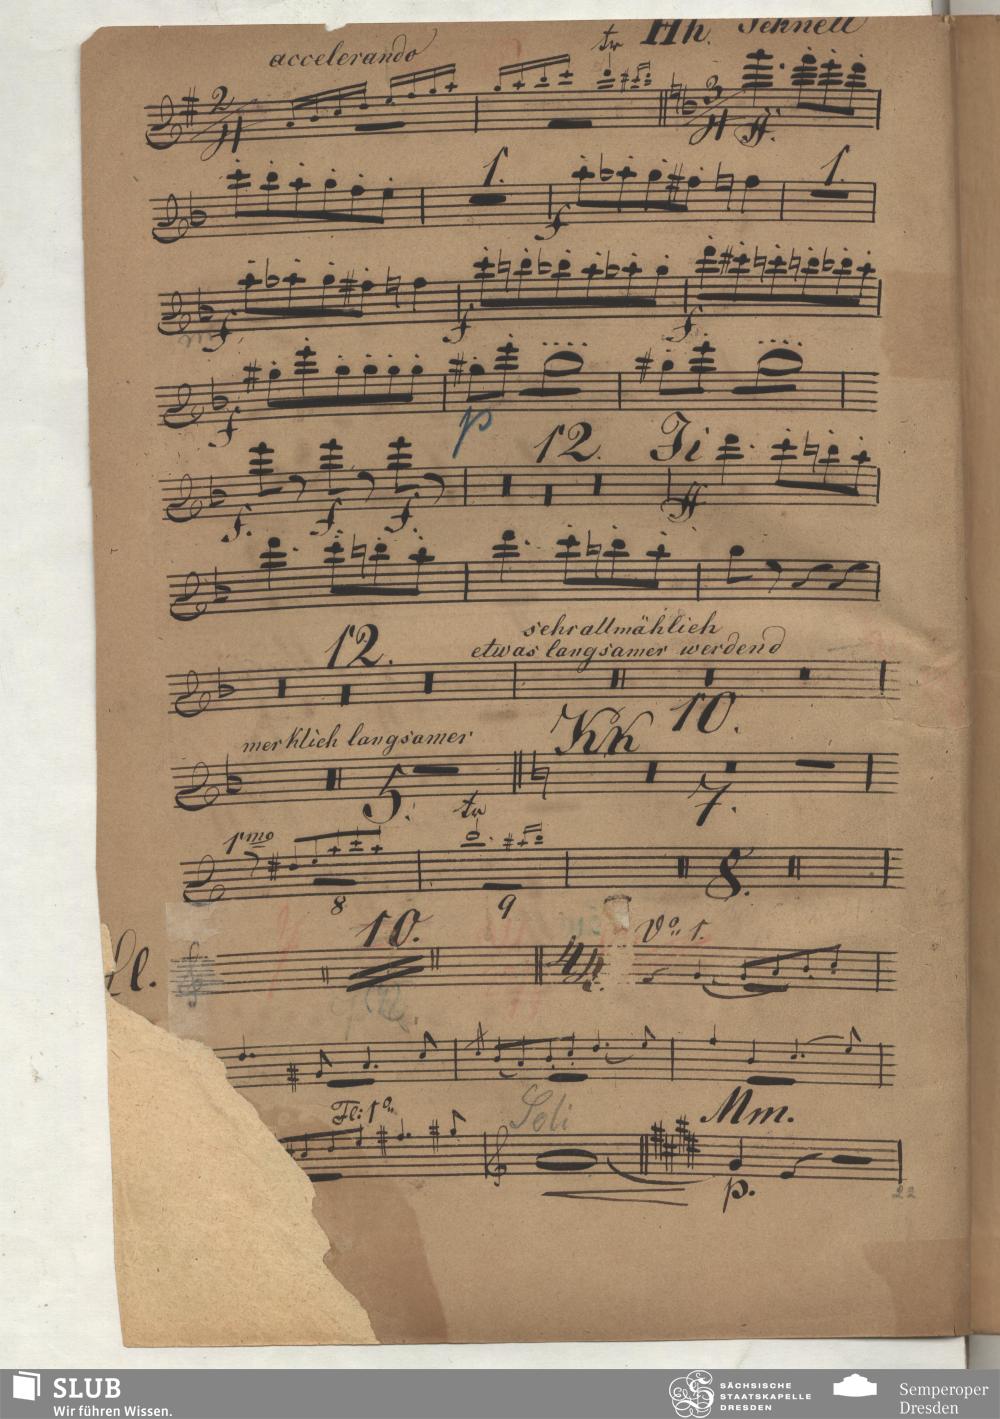 accelerando tr Hh. Schnell
2/4 3/4 ff.
1. f 1.
f f f
f p
f. f. f. 12. Ji ff
12. sehr allmählich
etwas langsamer werdend
10.
merklich langsamer Kk
5. 7.
1mo tr
8 9 8.
10. 4/4 Vo. 1.
Fl: 1o Soli Mm.
p. 22
SLUB
Wir führen Wissen.
SÄCHSISCHE
STAATSKAPELLE
DRESDEN
Semperoper
Dresden